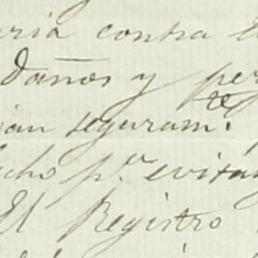 ria contra
daños y per
te
ian seguram.te
cho p.r evitar
El Registro